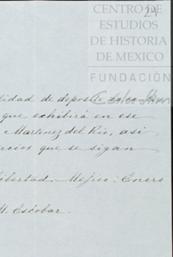 24
CENTRO DE
ESTUDIOS
DE HISTORIA
DE MEXICO
FUNDACIÓN
lidad de deposito
que exhibirá en ese
Martinez del Rio, asi
cios que se sigan
Libertad. Mejico. Enero
M. Escobar.